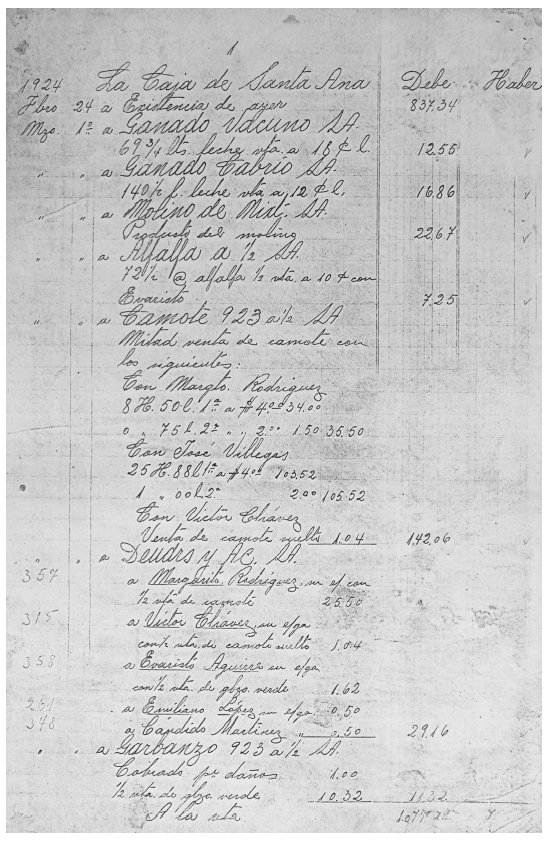 1
1924 La Caja de Santa Ana Debe Haber
Fbro 24 a Existencia de ayer 837.34
Mzo. 1º a Ganado Vacuno SA.
69 3/4 lts. leche vta. a 18 ¢ l. 12.55
" " a Ganado Cabrio SA.
140 1/2 l. leche vta a 12 ¢ l. 16.86
" " a Molino de Nixt. SA.
Producto del molino 22.67
" " a Alfalfa a 1/2 SA.
72 1/2 @ alfalfa 1/2 vta. a 10 ¢ con
Evaristo 7.25
" " a Camote 923 a 1/2 SA
Mitad venta de camote con
los siguientes:
Con Margto. Rodriguez
8 H. 50 l. 1ª a $4.00 34.00
0 " 75 l. 2ª " " 2.00 1.50 35.50
Con José Villegas
25 H. 88 l 1ª a $4.00 103.52
1 " 00 l. 2ª 2.00 105.52
Con Victor Chávez
Venta de camote suelto 1.04 142.06
" " a Deudrs y AC. SA.
357 a Margarito Rodriguez, su e/ con
1/2 vta de camote 25.50
315 a Victor Chávez, su e/ga
con 1/2 vta. de camote suelto 1.04
358 a Evaristo Aguirre su e/ga
con 1/2 vta. de gbzo. verde 1.62
a Emiliano López, su e/ga 0.50
348 a Cándido Martínez " 0.50 29.16
" " a Garbanzo 923 a 1/2 SA.
Cobrado pr daños 1.00
1/2 vta. de gbzo. verde 10.32 11.32
A la vta.